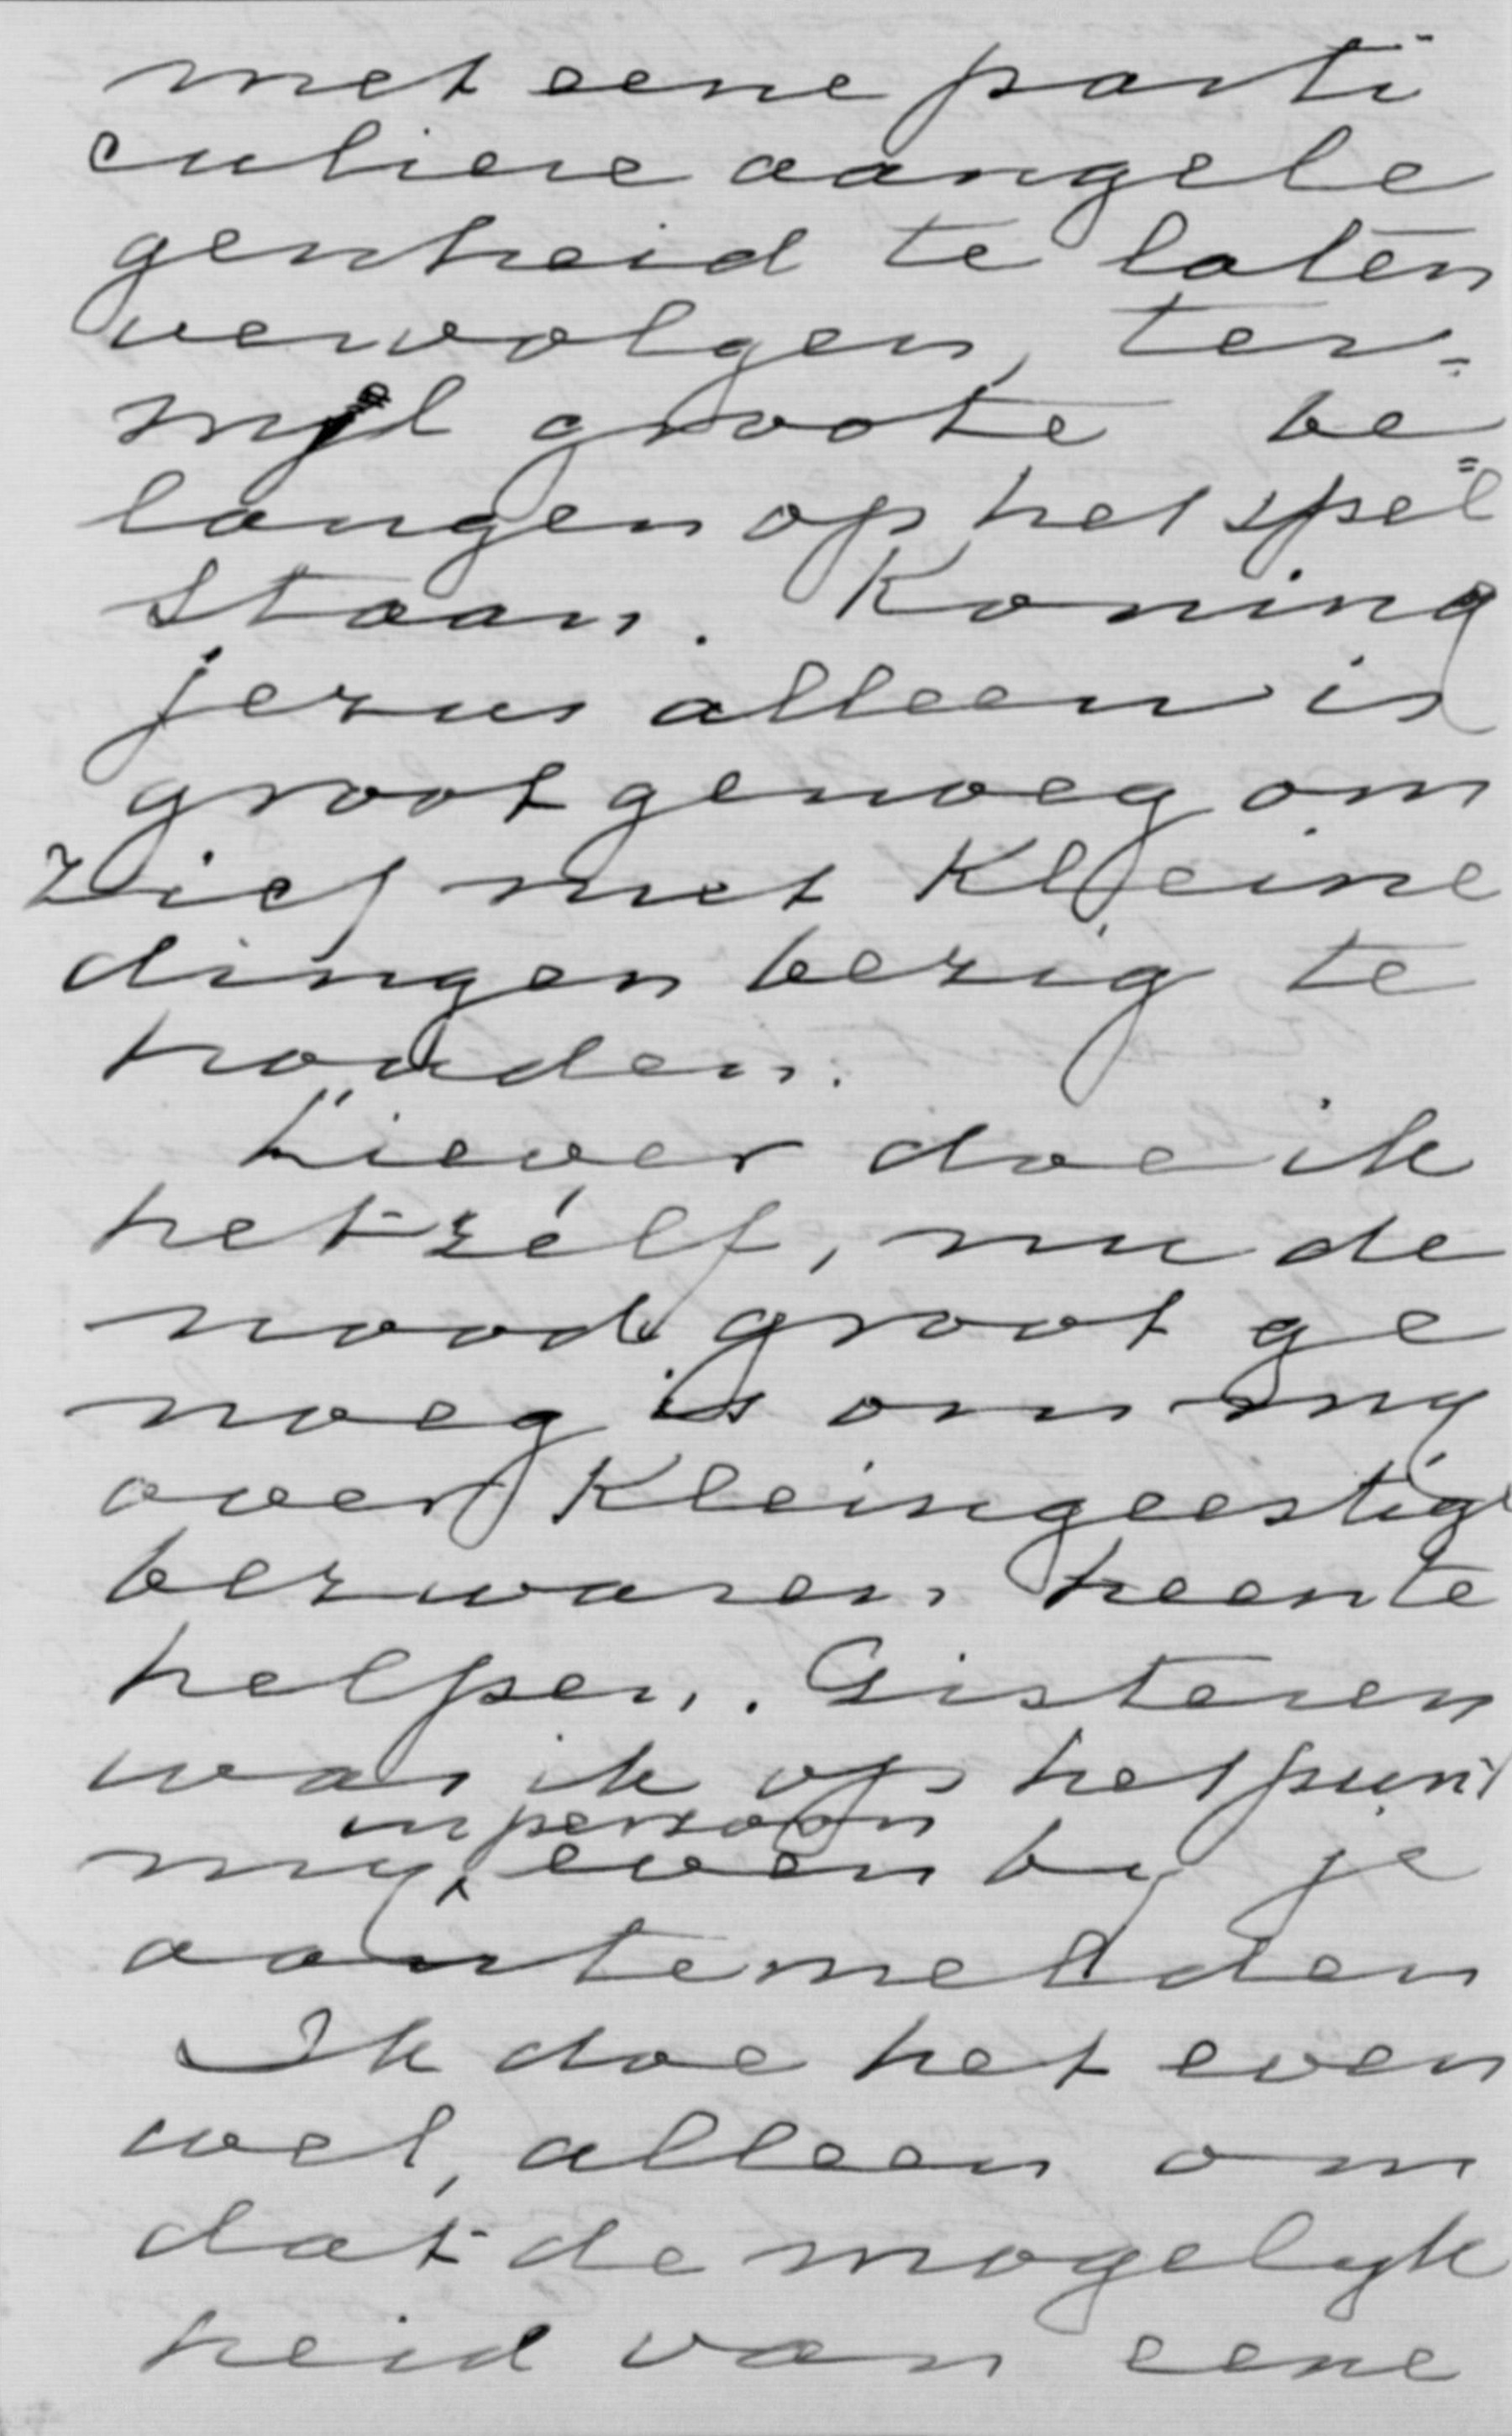 met eene parti
culiere aangele
genheid te laten
vervolgen, ter=
wyl groote be=
langen op het spel
staan. Koning
jezus alleen is
groot genoeg om
zich met Kleine
dingen bezig te
houden.
Liever doe ik
het zélf, nu de
nood groot ge
noeg is om my
over Kleingeestige
bezwaren heen te
helpen. Gisteren
was ik op het punt
in persoon
my, even by je
aantemelden
Ik doe het even
wel, alleen om
dat de mogelyk
heid van eene